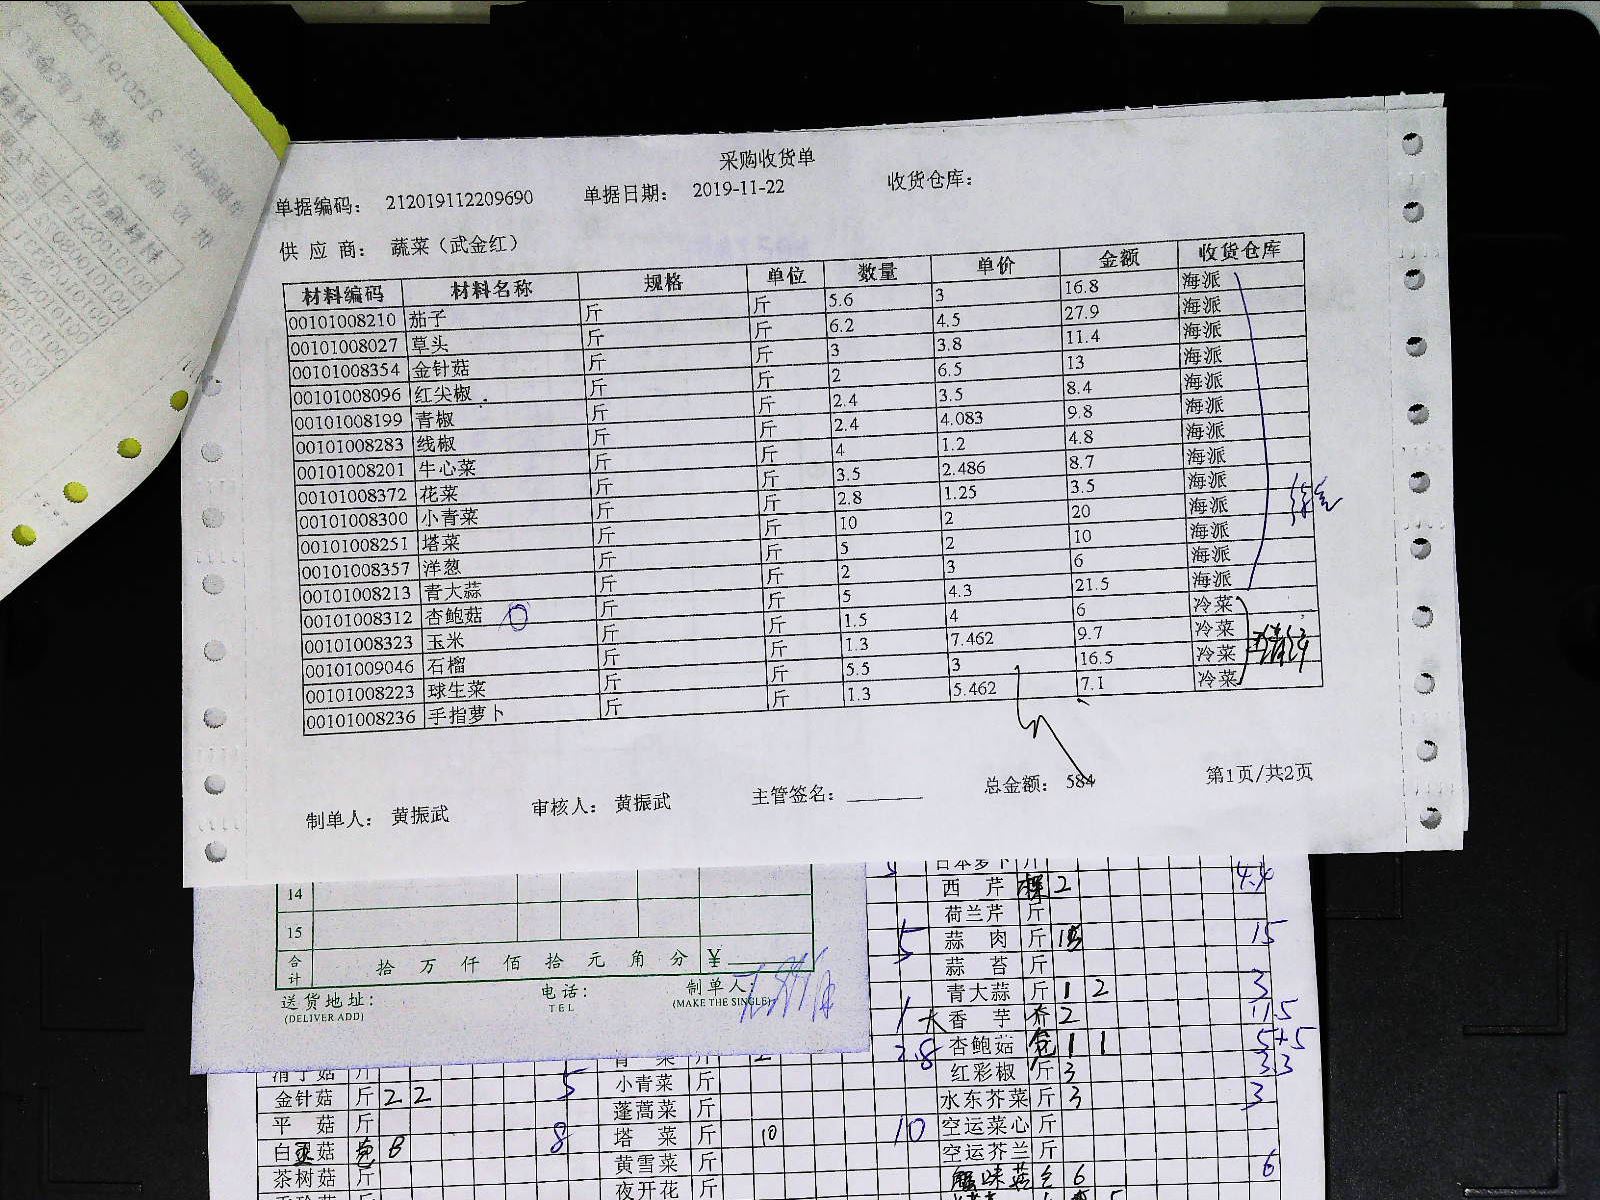 采购收货单
单据编码： 212019112209690 单据日期： 2019-11-22 收货仓库：
供 应 商： 蔬菜（武金红）
材料编码 材料名称 规格 单位 数量 单价 金额 收货仓库
00101008210 茄子 斤 斤 5.6 3 16.8 海派
00101008027 草头 斤 斤 6.2 4.5 27.9 海派
00101008354 金针菇 斤 斤 3 3.8 11.4 海派
00101008096 红尖椒 斤 斤 2 6.5 13 海派
00101008199 青椒 斤 斤 2.4 3.5 8.4 海派
00101008283 线椒 斤 斤 2.4 4.083 9.8 海派
00101008201 牛心菜 斤 斤 4 1.2 4.8 海派
00101008372 花菜 斤 斤 3.5 2.486 8.7 海派
00101008300 小青菜 斤 斤 2.8 1.25 3.5 海派
00101008251 塔菜 斤 斤 10 2 20 海派
00101008357 洋葱 斤 斤 5 2 10 海派
00101008213 青大蒜 斤 斤 2 3 6 海派
00101008312 杏鲍菇 斤 斤 5 4.3 21.5 海派
00101008323 玉米 斤 斤 1.5 4 6 冷菜
00101009046 石榴 斤 斤 1.3 7.462 9.7 冷菜
00101008223 球生菜 斤 斤 5.5 3 16.5 冷菜
00101008236 手指萝卜 斤 斤 1.3 5.462 7.1 冷菜
制单人： 黄振武 审核人： 黄振武 主管签名： 总金额： 584 第1页/共2页
14
15
合计 拾 万 仟 佰 拾 元 角 分 ￥
送货地址： 电话： 制单人：
(DELIVER ADD) TEL (MAKE THE SINGLE)
日本萝卜 斤
西 芹 2 4.4
荷兰芹 斤
5 蒜 肉 斤 15
蒜 苔 斤
青大蒜 斤 1 2 3
1 大香 芋 2 11.5
2.8 杏鲍菇 包 1 1 5+5
红彩椒 斤 3 3.3
水东芥菜 斤 3 3
10 空运菜心 斤
空运芥兰 斤
蟹味菇 6 6
金针菇 斤 2 2 5
平 菇 斤
白玉菇 8 8
茶树菇 斤
小青菜 斤
蓬蒿菜 斤
塔 菜 斤 10
黄雪菜 斤
夜开花 斤